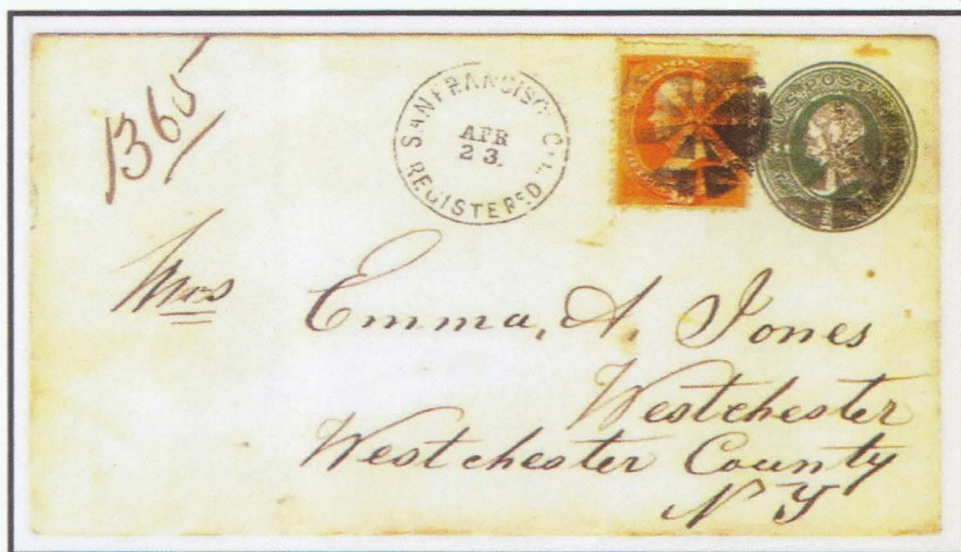 1365
SAN FRANCISCO CAL.
APR
23.
REGISTERED
U.S. POSTAGE
Mrs Emma, A. Jones
Westchester
Westchester County
N Y